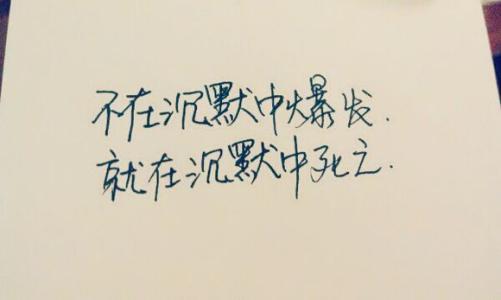 不在沉默中爆发.
就在沉默中死亡.